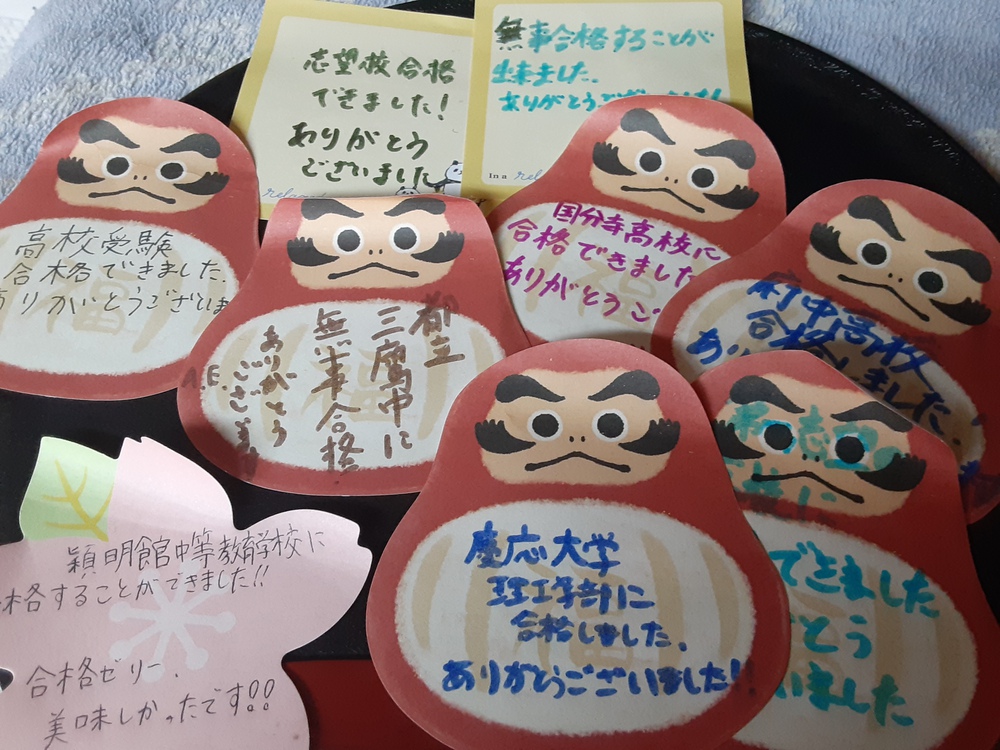 志望校合格
できました!
ありがとう
ございました
無事合格することが
出来ました。
ありがとうございました!!
In a
高校受験
合格できました。
ありがとうござい
都立
三鷹中に
無事合格
ありがとう
ございま
A.E.
国分寺高校に
合格できました
ありがとうご
中高校
合格しました。
あ
慶応大学
理工学部に
合格しました。
ありがとうございました!!
できました
とう
いました
穎明館中等教育学校に
格することができました!!
合格ゼリー、
美味しかったです!!